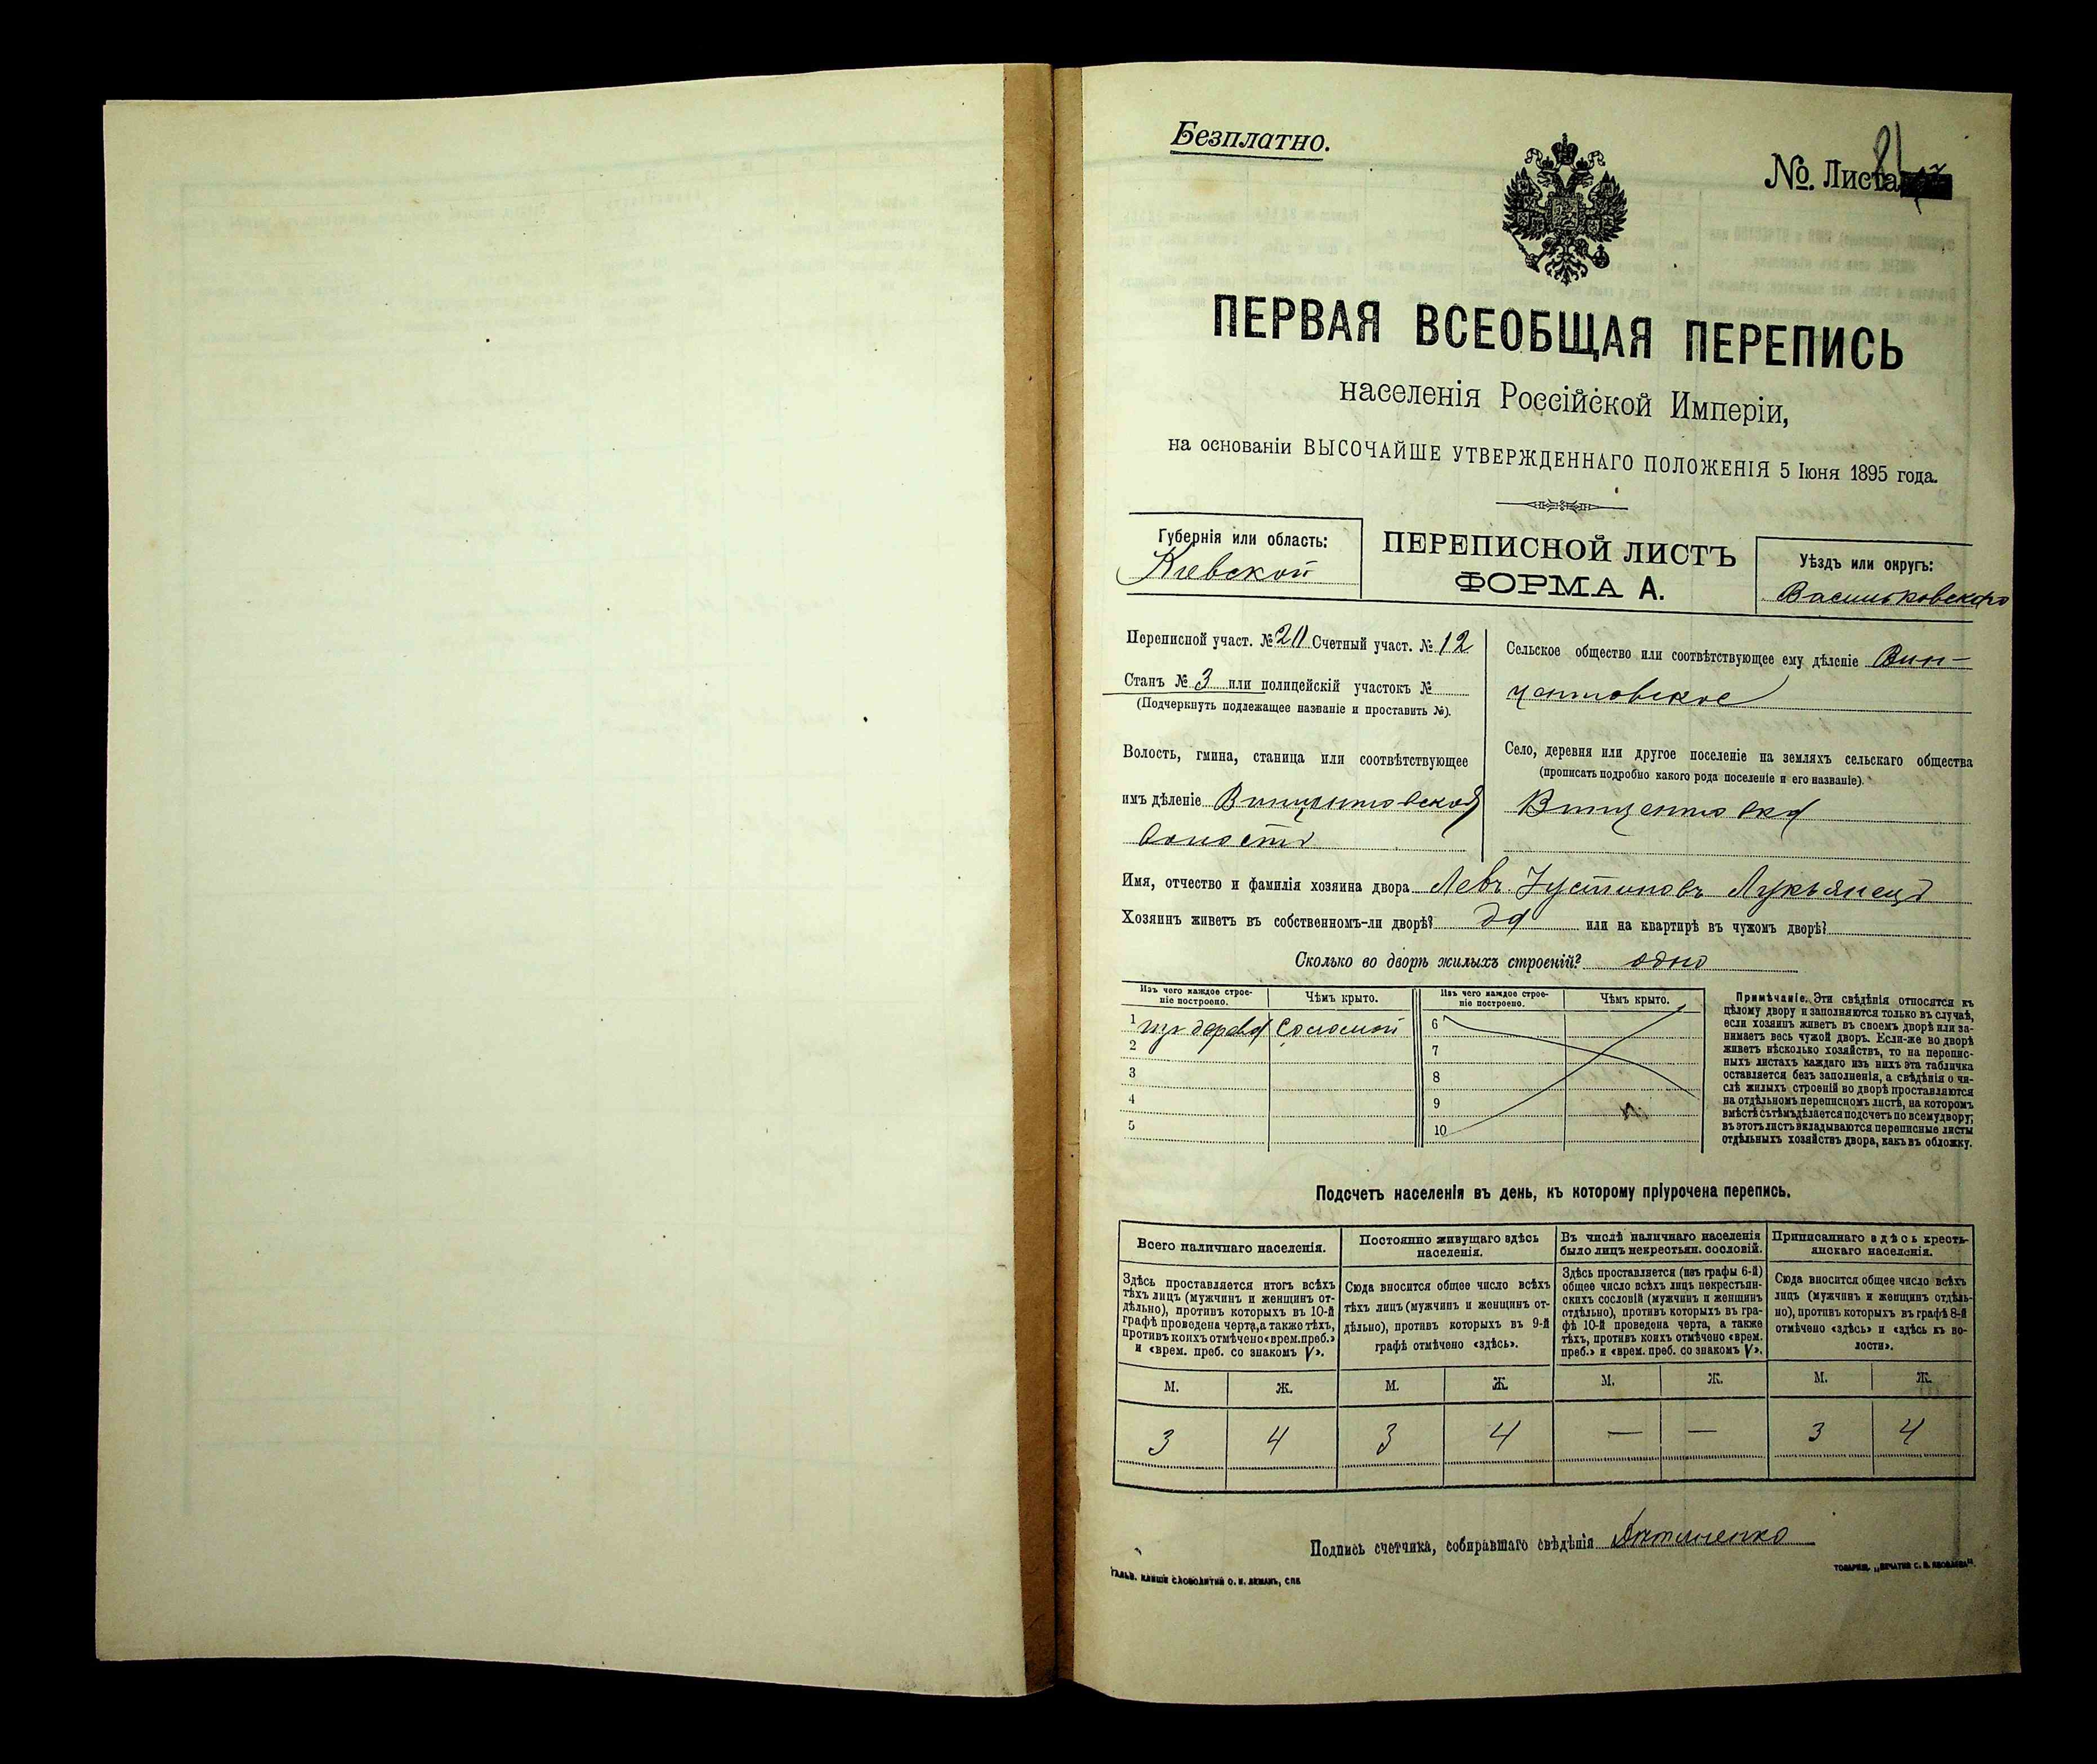 Безплатно.
№. Листа 81
ПЕРВАЯ ВСЕОБЩАЯ ПЕРЕПИСЬ
населенія Россійской Имперіи,
на основаніи ВЫСОЧАЙШЕ УТВЕРЖДЕННАГО ПОЛОЖЕНІЯ 5 Іюня 1895 года.
Губернія или область:
Кіевской
ПЕРЕПИСНОЙ ЛИСТЪ
ФОРМА А.
Уѣздъ или округъ:
Васильковскаго
Переписной участ. № 20 Счетный участ. № 12
Станъ № 3 или полицейскій участокъ №
(Подчеркнуть подлежащее названіе и проставить №).
Волость, гмина, станица или соотвѣтствующее
имъ дѣленіе Винцентовской
волости
Сельское общество или соотвѣтствующее ему дѣленіе Вин-
центовское
Село, деревня или другое поселеніе на земляхъ сельскаго общества
(прописать подробно какого рода поселеніе и его названіе).
Винцентовка
Имя, отчество и фамилія хозяина двора Левъ Іустиновъ Лукьянецъ
Хозяинъ живетъ въ собственномъ-ли дворѣ? да или на квартирѣ въ чужомъ дворѣ?
Сколько во дворѣ жилыхъ строеній? одно
Изъ чего каждое строе-
ніе построено.
Чѣмъ крыто.
Изъ чего каждое строе-
ніе построено.
Чѣмъ крыто.
1 изъ дерева соломой
2
3
4
5
6
7
8
9
10
Примѣчаніе. Эти свѣдѣнія относятся къ
цѣлому двору и заполняются только въ случаѣ,
если хозяинъ живетъ въ своемъ дворѣ или за-
нимаетъ весь чужой дворъ. Если-же во дворѣ
живетъ нѣсколько хозяйствъ, то на перепис-
ныхъ листахъ каждаго изъ нихъ эта табличка
оставляется безъ заполненія, а свѣдѣнія о чи-
слѣ жилыхъ строеній во дворѣ проставляются
на отдѣльномъ переписномъ листѣ, на которомъ
вмѣстѣ съ тѣмъ дѣлается подсчетъ по всему двору;
въ этотъ листъ вкладываются переписные листы
отдѣльныхъ хозяйствъ двора, какъ въ обложку.
Подсчетъ населенія въ день, къ которому пріурочена перепись.
Всего наличнаго населенія.
Здѣсь проставляется итогъ всѣхъ
тѣхъ лицъ (мужчинъ и женщинъ от-
дѣльно), противъ которыхъ въ 10-й
графѣ проведена черта, а также тѣхъ,
противъ коихъ отмѣчено «врем. преб.»
и «врем. преб. со знакомъ V».
Постоянно живущаго здѣсь
населенія.
Сюда вносится общее число всѣхъ
тѣхъ лицъ (мужчинъ и женщинъ от-
дѣльно), противъ которыхъ въ 9-й
графѣ отмѣчено «здѣсь».
Въ числѣ наличнаго населенія
было лицъ некрестьян. сословій.
Здѣсь проставляется (изъ графы 6-й)
общее число всѣхъ лицъ некрестьян-
скихъ сословій (мужчинъ и женщинъ
отдѣльно), противъ которыхъ въ гра-
фѣ 10-й проведена черта, а также
тѣхъ, противъ коихъ отмѣчено «врем.
преб.» и «врем. преб. со знакомъ V».
Приписаннаго здѣсь кресть-
янскаго населенія.
Сюда вносится общее число всѣхъ
лицъ (мужчинъ и женщинъ отдѣль-
но), противъ которыхъ въ графѣ 8-й
отмѣчено «здѣсь» и «здѣсь къ во-
лости».
М. Ж. М. Ж. М. Ж. М. Ж.
3 4 3 4 — — 3 4
Подпись счетчика, собиравшаго свѣдѣнія
ГАЛЬВ. КЛИШЕ СЛОВОЛИТНИ О. И. ЛЕМАНЪ, СПБ
ТОВАРИЩ. „ПЕЧАТНЯ С. П. ЯКОВЛЕВА“.